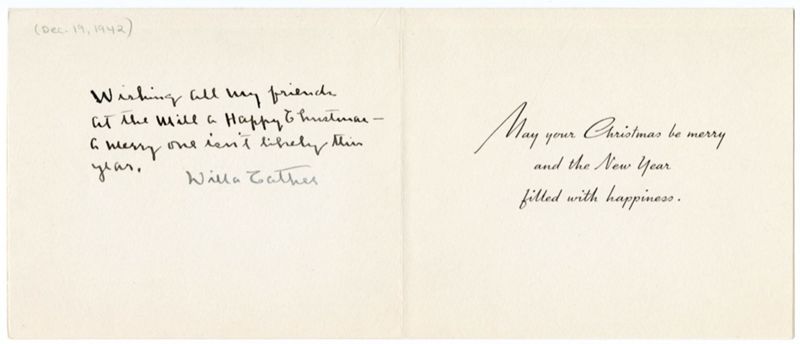 (Dec. 19, 1942)
Wishing all my friends
at the Mill a Happy Christmas —
a merry one isn't likely this
year.
Willa Cather
May your Christmas be merry
and the New Year
filled with happiness.